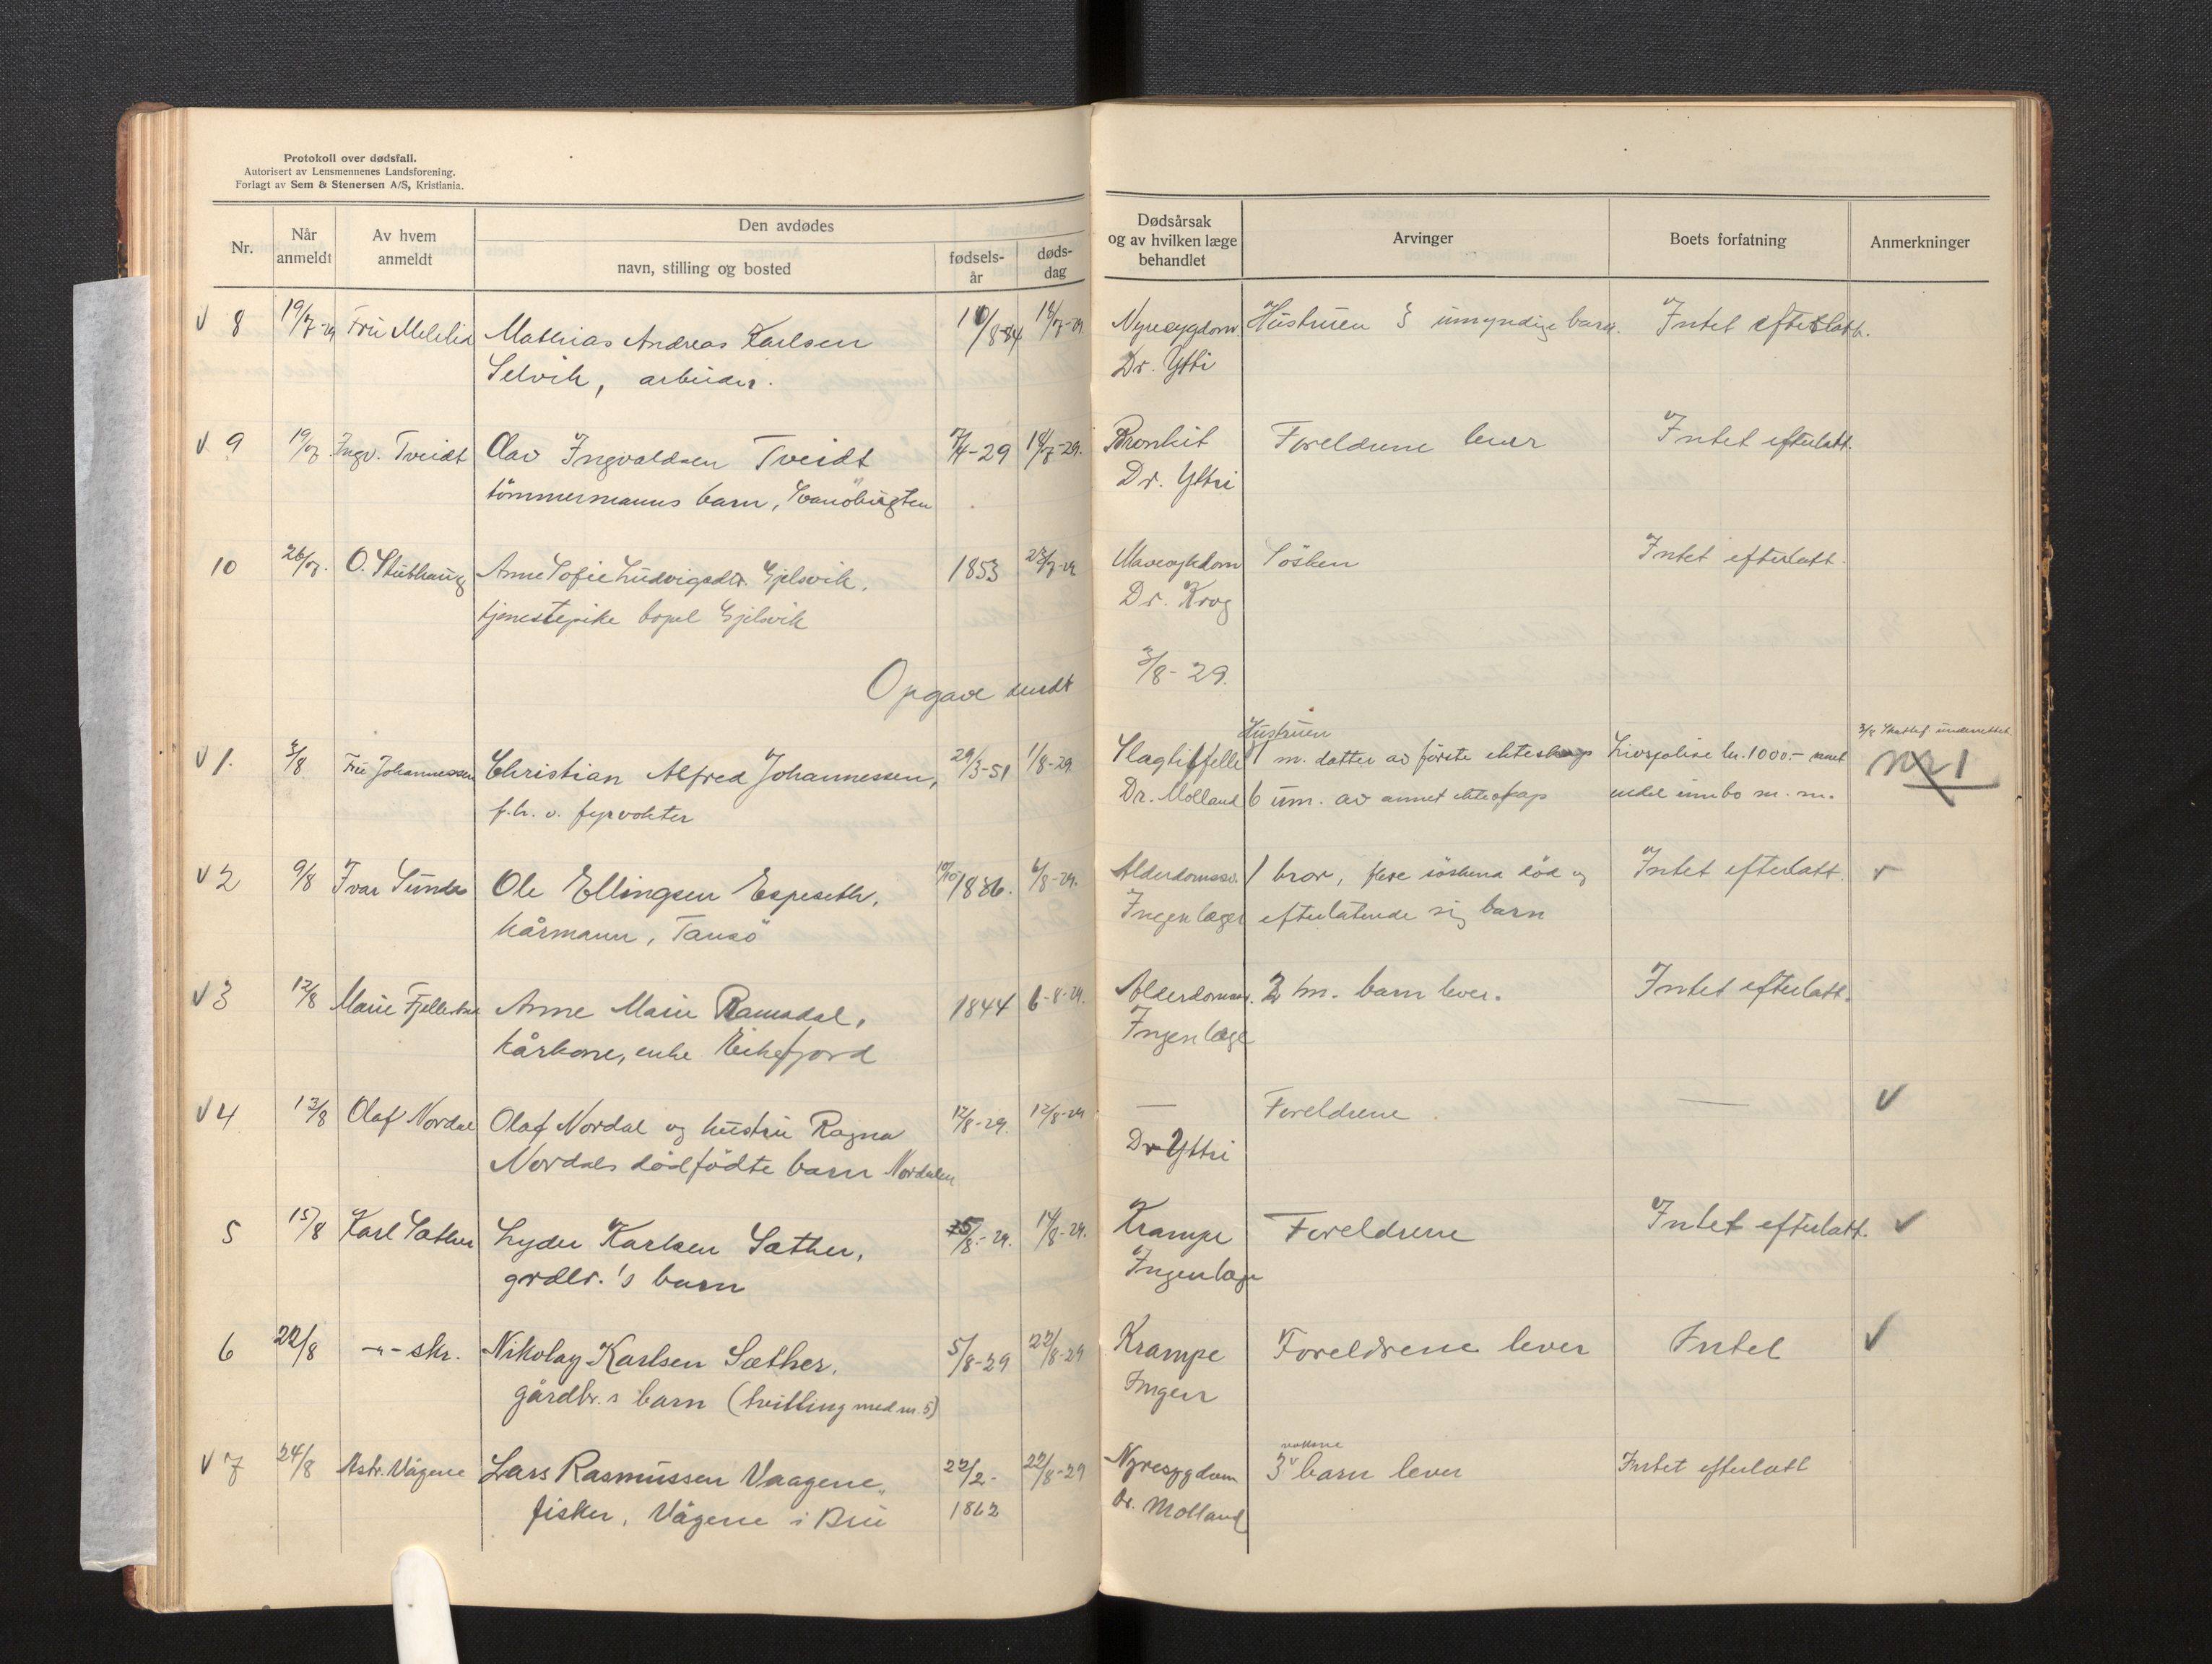 Protokoll over dødsfall.
Autorisert av Lensmennenes Landsforening.
Forlagt av Sem & Stenersen A/S, Kristiania.
Nr.
Når anmeldt
Av hvem anmeldt
Den avdødes
navn, stilling og bosted
fødsels-år
døds-dag
Dødsårsak og av hvilken læge behandlet
Arvinger
Boets forfatning
Anmerkninger
V 8 19/7-29 Fru Mathias Andreas Karlsen 10/8-84 18/7-29 Nyresygdom Hustruen 3 umyndige barn. Intet efterlatt.
Selvik, arbeider. Dr. Yttri
V 9 19/7 Ingv. Tveidt Olav Ingvaldsen Tveidt 7/4-29 14/7-29. Bronkit Foreldrene lever Intet efterlatt.
tömmermanns barn, Svanöbugten Dr. Yttri
10 26/7. O. Stubhaug Anne Sofie Ludvigsdtr. Gjelsvik. 1853 Mavesykdom Sösken Intet efterlatt.
tjenestepike bopel Gjelsvik Dr. Krog
Opgave sendt 3/8-29.
Hustruen 3/8 underrettet.
V 1. 3/8 Fru Johannessen Christian Alfred Johannessen, 29/3-51 1/8-29. Slagtilfelle 1 m. datter av förste ekteskap Livspolise kr. 1000.- samt nr 1
f.h.v. fyrvokter Dr. Molland 6 um. av annet ekteskap endel innbo m.m.
V 2 9/8 Ivar Sunde Ole Ellingsen Espeseth. 6/8-29. Alderdomssv. 1 bror, flere söskend död og Intet efterlatt. v
kårmann, Tansö Ingen læge efterlatende sig barn
V 3 12/8 Marie Anne Marie Ramsdal, 1844 6-8-29. Alderdomssv. 2 m. barn lever. Intet efterlatt.
kårkone, enke Eikefjord Ingen læge
V 4 13/8 Olaf Nordal Olaf Nordal og hustru Ragna 12/8-29. 12/8-29 — Foreldrene. — V
Nordals dödfödte barn Nordalen Dr Yttri
5 15/8 Karl Sæther Lyder Karlsen Sæther, 5/8-29. 14/8-29. Krampe Foreldrene Intet efterlatt. V
grdbr.'s barn Ingen læge
6 22/8 -"- skr. Nikolay Karlsen Sæther. 5/8-29 22/8-29 Krampe Foreldrene lever Intet V
gårdbr.s barn (tvilling med nr. 5) Ingen
voksne
V 7 24/8 Astr. Vågene Lars Rasmussen Vaagene, 22/2- 22/8-29 Nyresygdom 3 v barn lever Intet efterlatt
fisker, Vågene i Bru 1862 Dr. Molland